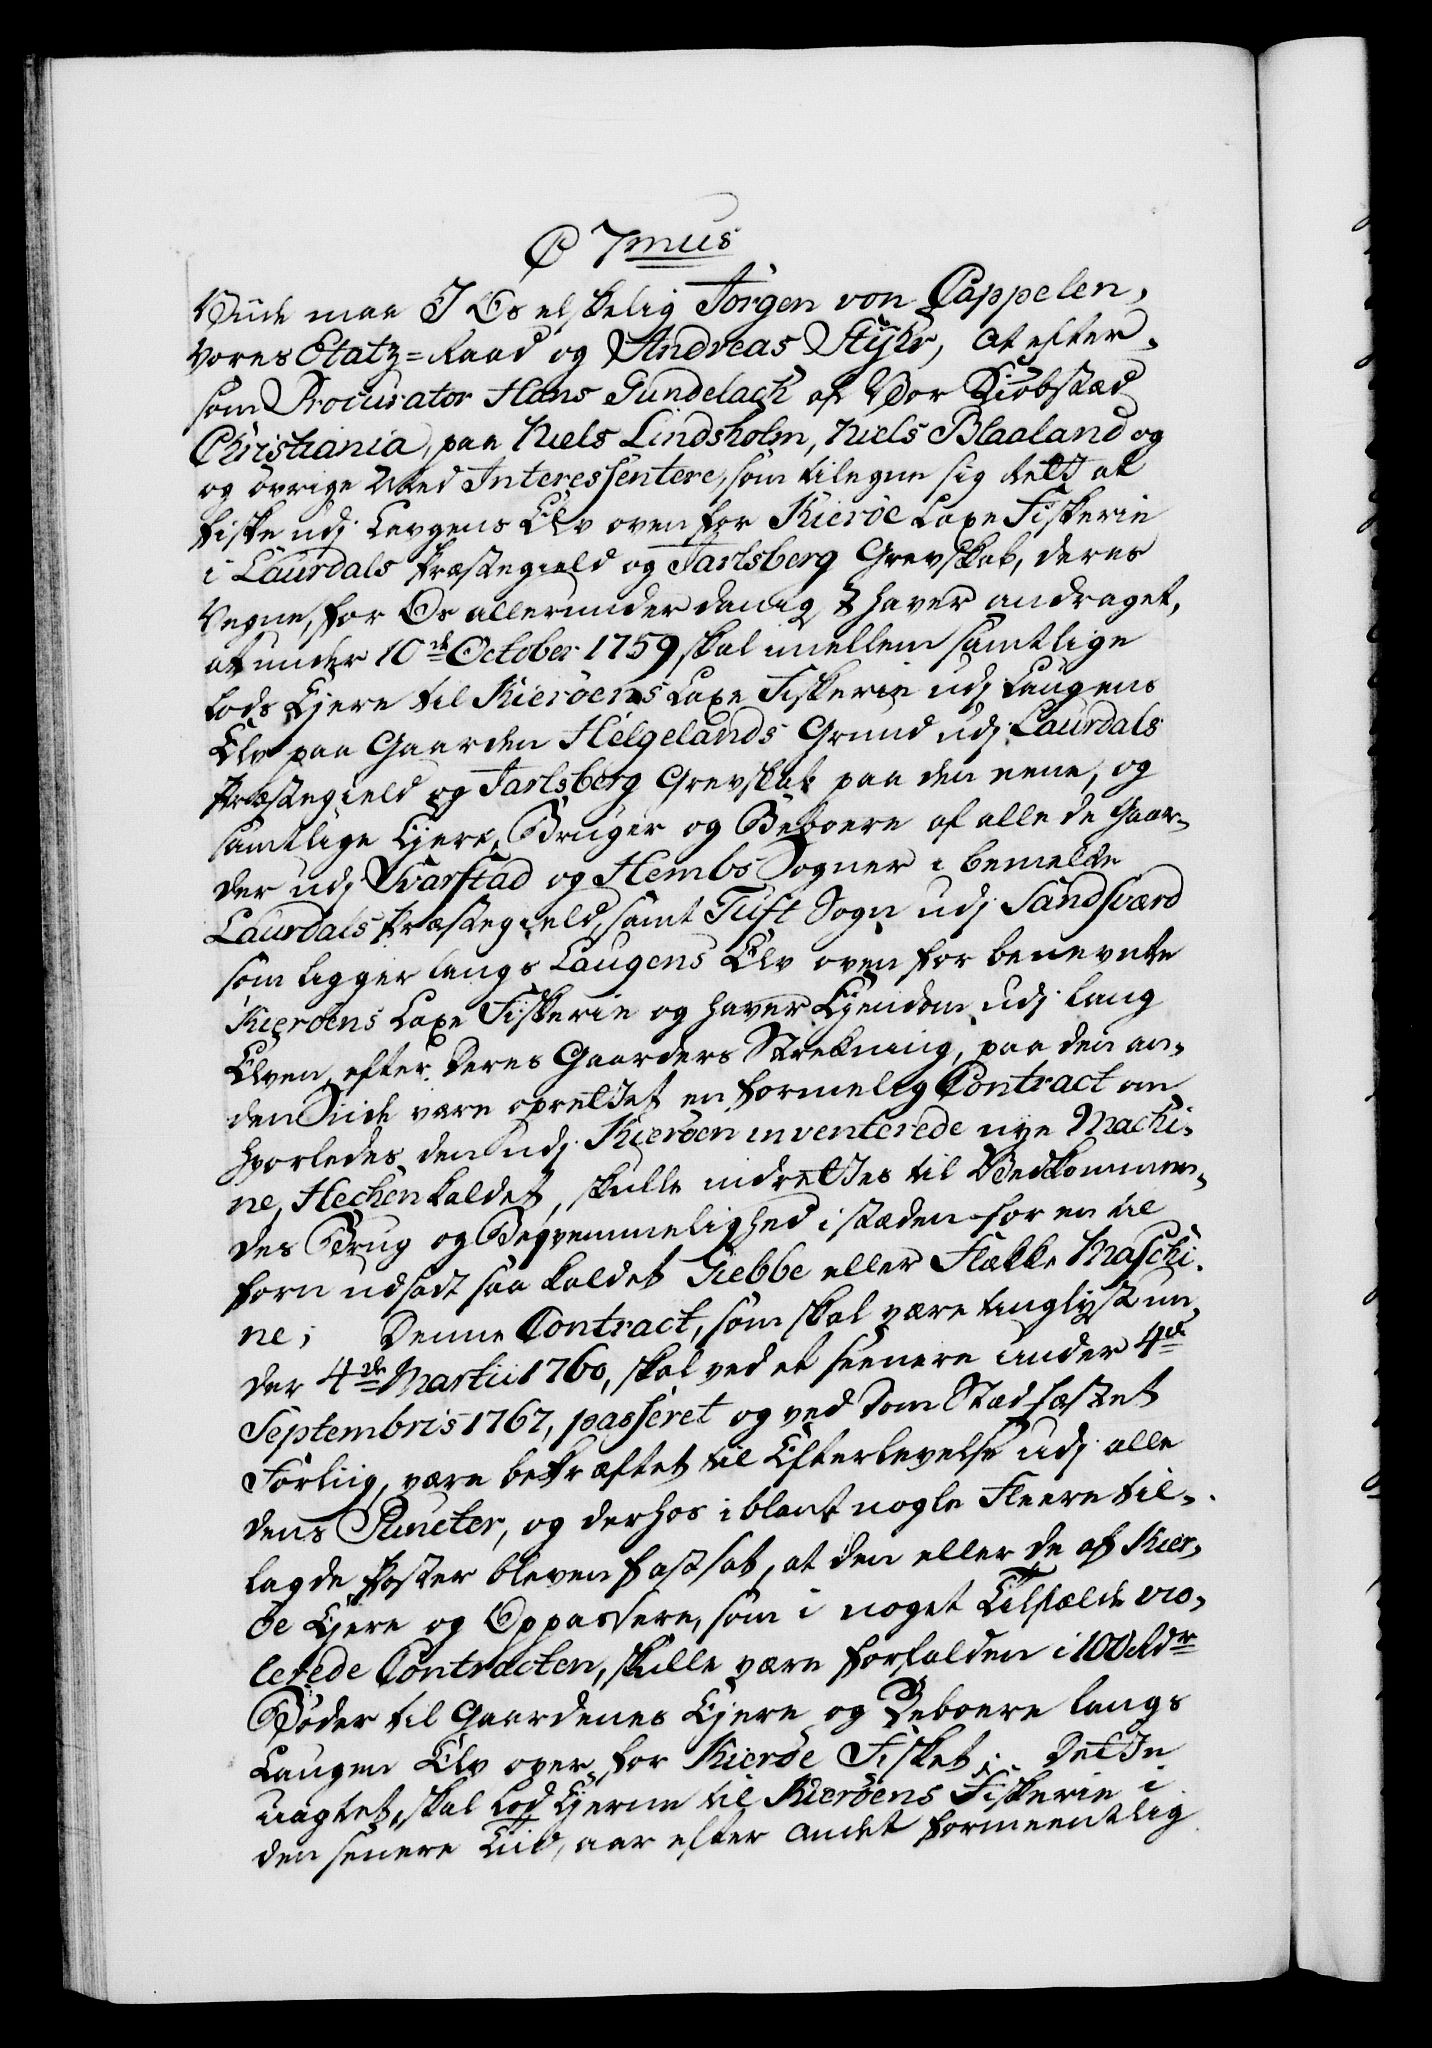 C 7mus
Viide maa I Os elskelig Jörgen von Cappelen,
Vores Etatz=Raad og Andreas Styhr, at efter-
som Procurator Hans Gundelach af Vor Kiöbstæd
Christiania, paa Niels Lindsholm, Niels Blaaland og
og övrige Med Interessentere, som tilegne sig Rett at
fiske udj Laugens Elv oven for Kieröe Laxe Fiskerie
i Laurdals Præstegield og Jarlsberg Grevskab, deres
Vegne, for Os allerunderdanigst haver andraget,
at under 10de October 1759 skal imellem samtlige
Lods Ejere til Kieröens Laxe Fiskerie udj Laugens
Elv paa Gaarden Helgelands Grund udj Laurdals
Præstegield og Jarlsberg Grevskab paa den eene, og
samtlige Ejere, Bruger og Beboere af alle de Gaar-
der udj Svarstad og Hembs Sogner i bemelde
Laurdals Præstegield, samt Tuft Sogn udj Sandsværd
som ligger langs Laugens Elv oven for benevnte
Kieröens Laxe Fiskerie og haver Ejendom udj Laug
Elven efter deres Gaarders Strekning, paa den an-
den Siide være oprettet en formelig Contract om
hvorledes den udj Kieröen inventerede nye Machi-
ne, Hechen kaldet, skulle indrettes til Vedkommen-
des Brug og Beqvemmelighed i stæden for en til
forn udsadt saa kaldet Giebbe eller Flække Maschi-
ne; Denne Contract, som skal være tinglyst un-
der 4de Martii 1760, skal ved et seenere under 4de
Septembris 1767, passeret og ved Dom Stadfæstet
Forliig, være bekræftet til Efterlevelse udj alle
dens Puncter, og derhos iblant nogle Fleere til-
lagde Poster bleven fastsat, at den eller de af Kier-
öe Ejere og Oppassere, som i noget Tilfælde vio-
lerede Contracten, skulle være forfalden i 100 Rdr
Böder til Gaardenes Ejere og Beboere langs
Laugen Elv oven for Kieröe Fisket; Dette
uagtet, skal Lod Ejerne til Kieröens Fiskerie i
den senere Tiid, aar efter andet formeentlig